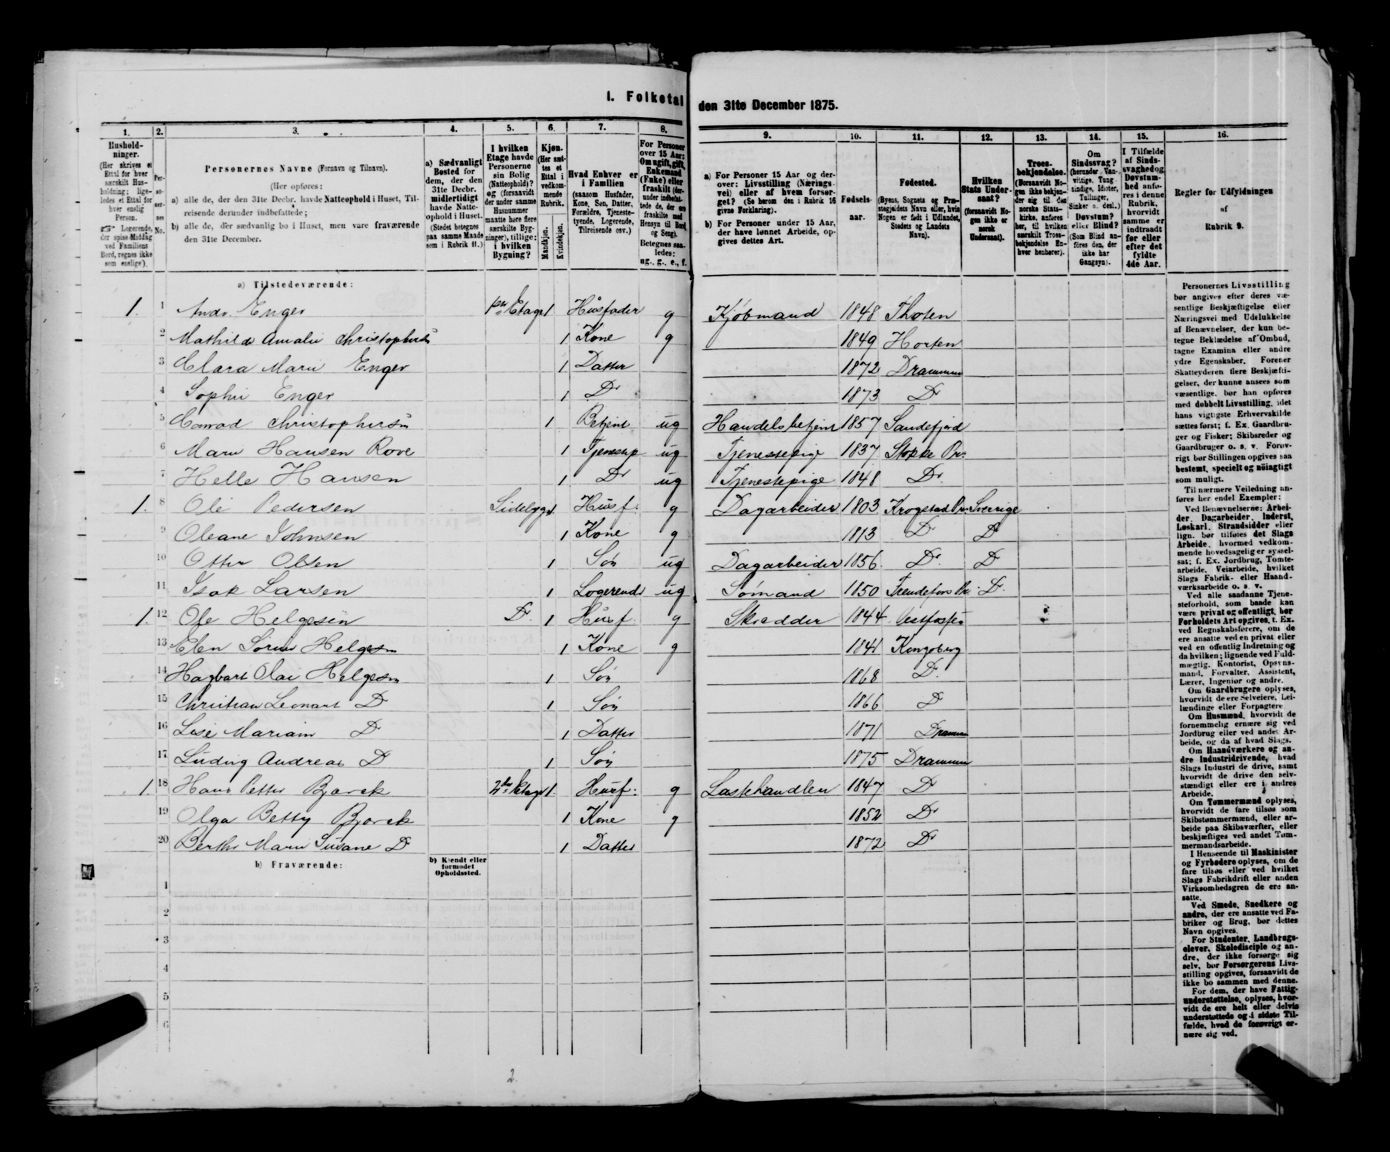 I. Folketal den 31te December 1875.
1. 2. 3. 4. 5. 6. 7. 8. 9. 10. 11. 12. 13. 14. 15. 16.
Hushold-
ninger.
(Her skrives et
Ettal for hver
særskilt Hus-
holdning; lige-
ledes et Ettal for
hver enslig
Person.
☞ Logerende,
der spise Middag
ved Familiens
Bord, regnes ikke
som enslige).
Per-
so-
ner-
nes
No.
Personernes Navne (Fornavn og Tilnavn).
(Her opføres:
a) alle de, der den 31te Decbr. havde Natteophold i Huset, Til-
reisende derunder indbefattede;
b) alle de, der sædvanlig bo i Huset, men vare fraværende
den 31te December.
a) Sædvanligt
Bosted for
dem, der den
31te Decbr.
midlertidigt
havde Natte-
ophold i Huset.
(Stedet betegnes
paa samme Maade
som i Rubrik 11.)
I hvilken
Etage havde
Personerne
sin Bolig
(Natteophold)?
og (forsaavidt
der under samme
Husnummer
maatte høre flere
særskilte Byg-
ninger), tillige:
i hvilken
Bygning?
Kjøn.
(Her sæt-
tes et
Ettal i
vedkom-
mende
Rubrik.
Mandkjøn.
Kvindekjøn.
Hvad Enhver er
i Familien
(saasom Husfader,
Kone, Søn, Datter,
Forældre, Tjeneste-
tyende, Logerende,
Tilreisende osv.)
For Personer
over 15 Aar:
Om ugift, gift,
Enkemand
(Enke) eller
fraskilt (der-
under indbefat-
tede de, der ere
fraskilte med
Hensyn til Bord
og Seng).
Betegnes saa-
ledes:
ug., g., e., f.
a) For Personer 15 Aar og der-
over: Livsstilling (Nærings-
vei) eller af hvem forsør-
get? (Se herom den i Rubrik 16
givne Forklaring).
b) For Personer under 15 Aar,
der have lønnet Arbeide, op-
gives dettes Art.
Fødsels-
aar.
Fødested.
(Byens, Sognets og Præ-
stegjeldets Navn eller, hvis
Nogen er født i Udlandet,
Stedets og Landets
Navn).
Hvilken
Stats Under-
saat?
(forsaavidt No-
gen ikke er
norsk
Undersaat).
Troes-
bekjendelse.
(Forsaavidt No-
gen ikke bekjen-
der sig til den
norske Stats-
kirke, anføres
her, til hvilken
særskilt Troes-
bekjendelse En-
hver henhører).
Om
Sindssvag?
(herunder Van-
vittige, Tung-
sindige, Idioter,
Tullinger,
Sinker o. desl.)
Døvstum?
eller Blind?
(Som Blind an-
føres den, der
ikke har
Gangsyn).
I Tilfælde
af Sinds-
svaghed og
Døvstum-
hed anfø-
res i denne
Rubrik,
hvorvidt
samme er
indtraadt
før eller
efter det
fyldte
4de Aar.
Regler for Udfyldningen
af
Rubrik 9.
a) Tilstedeværende:
1. 1 Ands. Enger 1ste Etage 1 Husfader g Kjøbmand 1848 Thoten
2 Mathilde Amalie Christophersn 1 Kone g 1849 Horten
3 Clara Marie Enger 1 Datter 1872 Drammen
4 Sophie Enger 1 Do 1873 Do
5 Conrad Christophersn 1 Betjent ug Handelsbetjent 1857 Sandefjord
6 Marn Hansen Rove 1 Tjenestep ug Tjenestepige 1837 Stokke Pr.
7 Helle Hansen 1 Do ug Tjenestepige 1848 Do
1. 8 Ole Pedersen Sidebyg 1 Husf. g Dagarbeider 1803 Krogstad Pr. Sverige
9 Oleane Johnsen 1 Kone g 1813 Do Do
10 Otter Olsen 1 Søn ug Dagarbeider 1856 Do Do
11 Isak Larsen 1 Logerende ug Sømand 1850 Do
1. 12 Ole Helgesen Do 1 Husf g Skrædder 1844 Vestfossen
13 Elen Sorine Helgesn 1 Kone g 1841 Kongsberg
14 Hagbart Olai Helgesn 1 Søn 1868 Do
15 Christian Leonart Do 1 Søn 1866 Do
16 Lise Mariain Do 1 Datter 1871 Drammen
17 Ludvig Andreas Do 1 Søn 1875 Drammen
1. 18 Hans Petter Bjorek 2den Etage 1 Husf. g Lastehandler 1847 Do
19 Olga Betty Bjorek 1 Kone g 1852 Do
20 Berthe Marn Susane Do 1 Datter 1872 Do
b) Fraværende:
b) Kjendt eller
formodet
Opholdssted.
1
2
3
4
5
6
2
Personernes Livsstilling
bør angives efter deres væ-
sentlige Beskjæftigelse eller
Næringsvei med Udelukkelse
af Benævnelser, der kun be-
tegne Beklædelse af Ombud,
tagne Examina eller andre
ydre Egenskaber. Forener
Skatteyderen flere Beskjæfti-
gelser, der kunne ansees som
væsentlige, bør han opføres
med dobbelt Livsstilling, idet
hans vigtigste Erhvervskilde
sættes først; f. Ex. Gaardbru-
ger og Fisker; Skibsreder og
Gaardbruger o. s. v. Forøv-
rigt bør Stillingen opgives saa
bestemt, specielt og nøiagtigt
som muligt.
Til nærmere Veiledning an-
føres her endel Exempler:
Ved Benævnelserne: Arbei-
der, Dagarbeider, Inderst,
Løskarl, Strandsidder eller
lign. bør tilføies det Slags
Arbeide, hvormed vedkom-
mende hovedsagelig er syssel-
sat; f. Ex. Jordbrug, Tomte-
arbeide, Veiarbeide, hvilket
Slags Fabrik- eller Haand-
værksarbeide o. s. v.
Ved alle saadanne Tjene-
steforhold, som baade kan
være privat og offentligt, bør
Forholdets Art opgives, f. Ex.
ved Regnskabsførere, om de
ere ansatte ved en privat eller
ved en offentlig Indretning og
da hvilken; lignende ved Fuld-
mægtig, Kontorist, Opsyns-
mand, Forvalter, Assistent,
Lærer, Ingeniør og andre.
Om Gaardbrugere oplyses,
hvorvidt de ere Selveiere, Lei-
lændinge eller Forpagtere.
Om Husmænd, hvorvidt de
fornemmelig ernære sig ved
Jordbrug eller ved andet Ar-
beide, og da af hvad Slags.
Om Haandværkere og an-
dre Industridrivende, hvad
Slags Industri de drive, samt
hvorvidt de drive den selv-
stændigt eller ere i andres
Arbeide.
Om Tømmermænd oplyses,
hvorvidt de fare tilsøs som
Skibstømmermænd, eller ar-
beide paa Skibsværfter, eller
beskjæftiges ved andet Tøm-
mermandsarbeide.
I Henseende til Maskinister
og Fyrbødere oplyses, om de
fare tilsøs eller ved hvilket
Slags Fabrikdrift eller anden
Virksomhedsgren de ere an-
satte.
Ved Smede, Snedkere og
andre, der ere ansatte ved Fa-
briker og Brug, bør dettes
Navn opgives.
For Studenter, Landbrugs-
elever, Skoledisciple og an-
dre, der ikke forsørge sig
selv, bør Forsørgerens Livs-
stilling opgives, forsaavidt de
ikke bo sammen med denne.
For dem, der have Fattig-
understøttelse, oplyses, hvor-
vidt de ere helt eller delvis
understøttede og i sidste Til-
fælde, hvad de forøvrigt er-
nære sig ved.